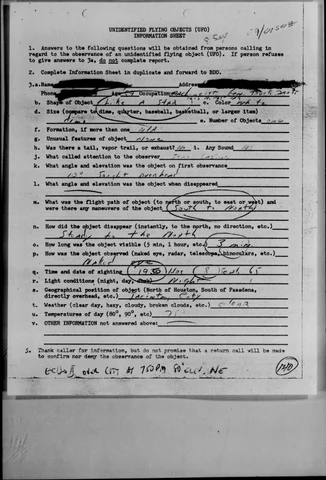 UNIDENTIFIED FLYING OBJECTS (UFO)
INFORMATION SHEET
1. Answers to the following questions will be obtained from persons calling in
regard to the observance of an unidentified flying object (UFO). If person refuses
to give answers to 3a, do not complete report.
2. Complete Information Sheet in duplicate and forward to EDO.
3.a. Name Address
Phone Occupation
b. Shape of Object Like A STAR c. Color white
d. Size (compare to dime, quarter, baseball, basketball, or larger item)
e. Number of Objects one
f. Formation, if more than one N/A
g. Unusual features of object None
h. Was there a tail, vapor trail, or exhaust No i. Any Sound No
j. What called attention to the observer
k. What angle and elevation was the object on first observance
overhead
l. What angle and elevation was the object when disappeared
m. What was the flight path of object (to north or south, to east or west) and
were there any maneuvers of the object (South to North)
n. How did the object disappear (instantly, to the north, no direction, etc.)
to the North
o. How long was the object visible (5 min, 1 hour, etc.) 3 min
p. How was the object observed (naked eye, radar, telescope, binoculars, etc.)
Naked eye
q. Time and date of sighting (1950 Hrs 65
r. Light conditions (night, day, Night
s. Geographical position of object (North of Houston, South of Pasadena,
directly overhead, etc.) City
t. Weather (clear, hazy, cloudy, broken clouds, etc.) clear
u. Temperatures of day (80°, 90°, etc) 75
v. OTHER INFORMATION not answered above:
5. Thank caller for information, but do not promise that a return call will be made
to confirm nor deny the observance of the object.
ECHO II over City AT 750PM NE